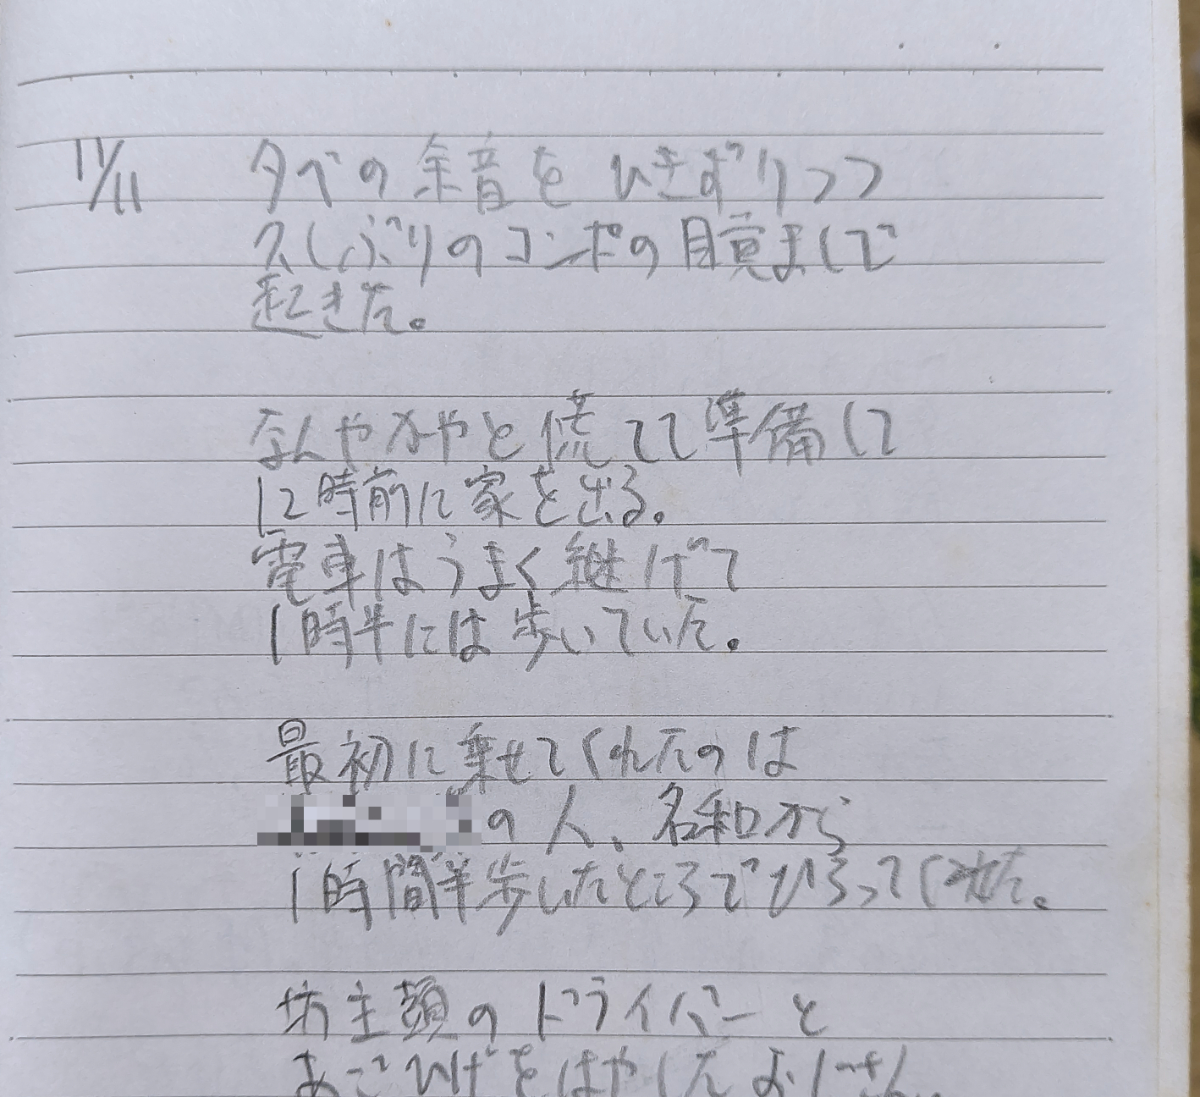 11/11 夕べの余音をひきずりつつ
久しぶりのコンポの目覚ましで
起きた。
なんやかやと慌てて準備して
12時前に家を出る。
電車はうまく継げて
1時半には歩いていた。
最初に乗せてくれたのは
の人、名和から
1時間半歩いたところでひろってくれた。
坊主頭のドライバーと
あごひげをはやしたお兄さん。